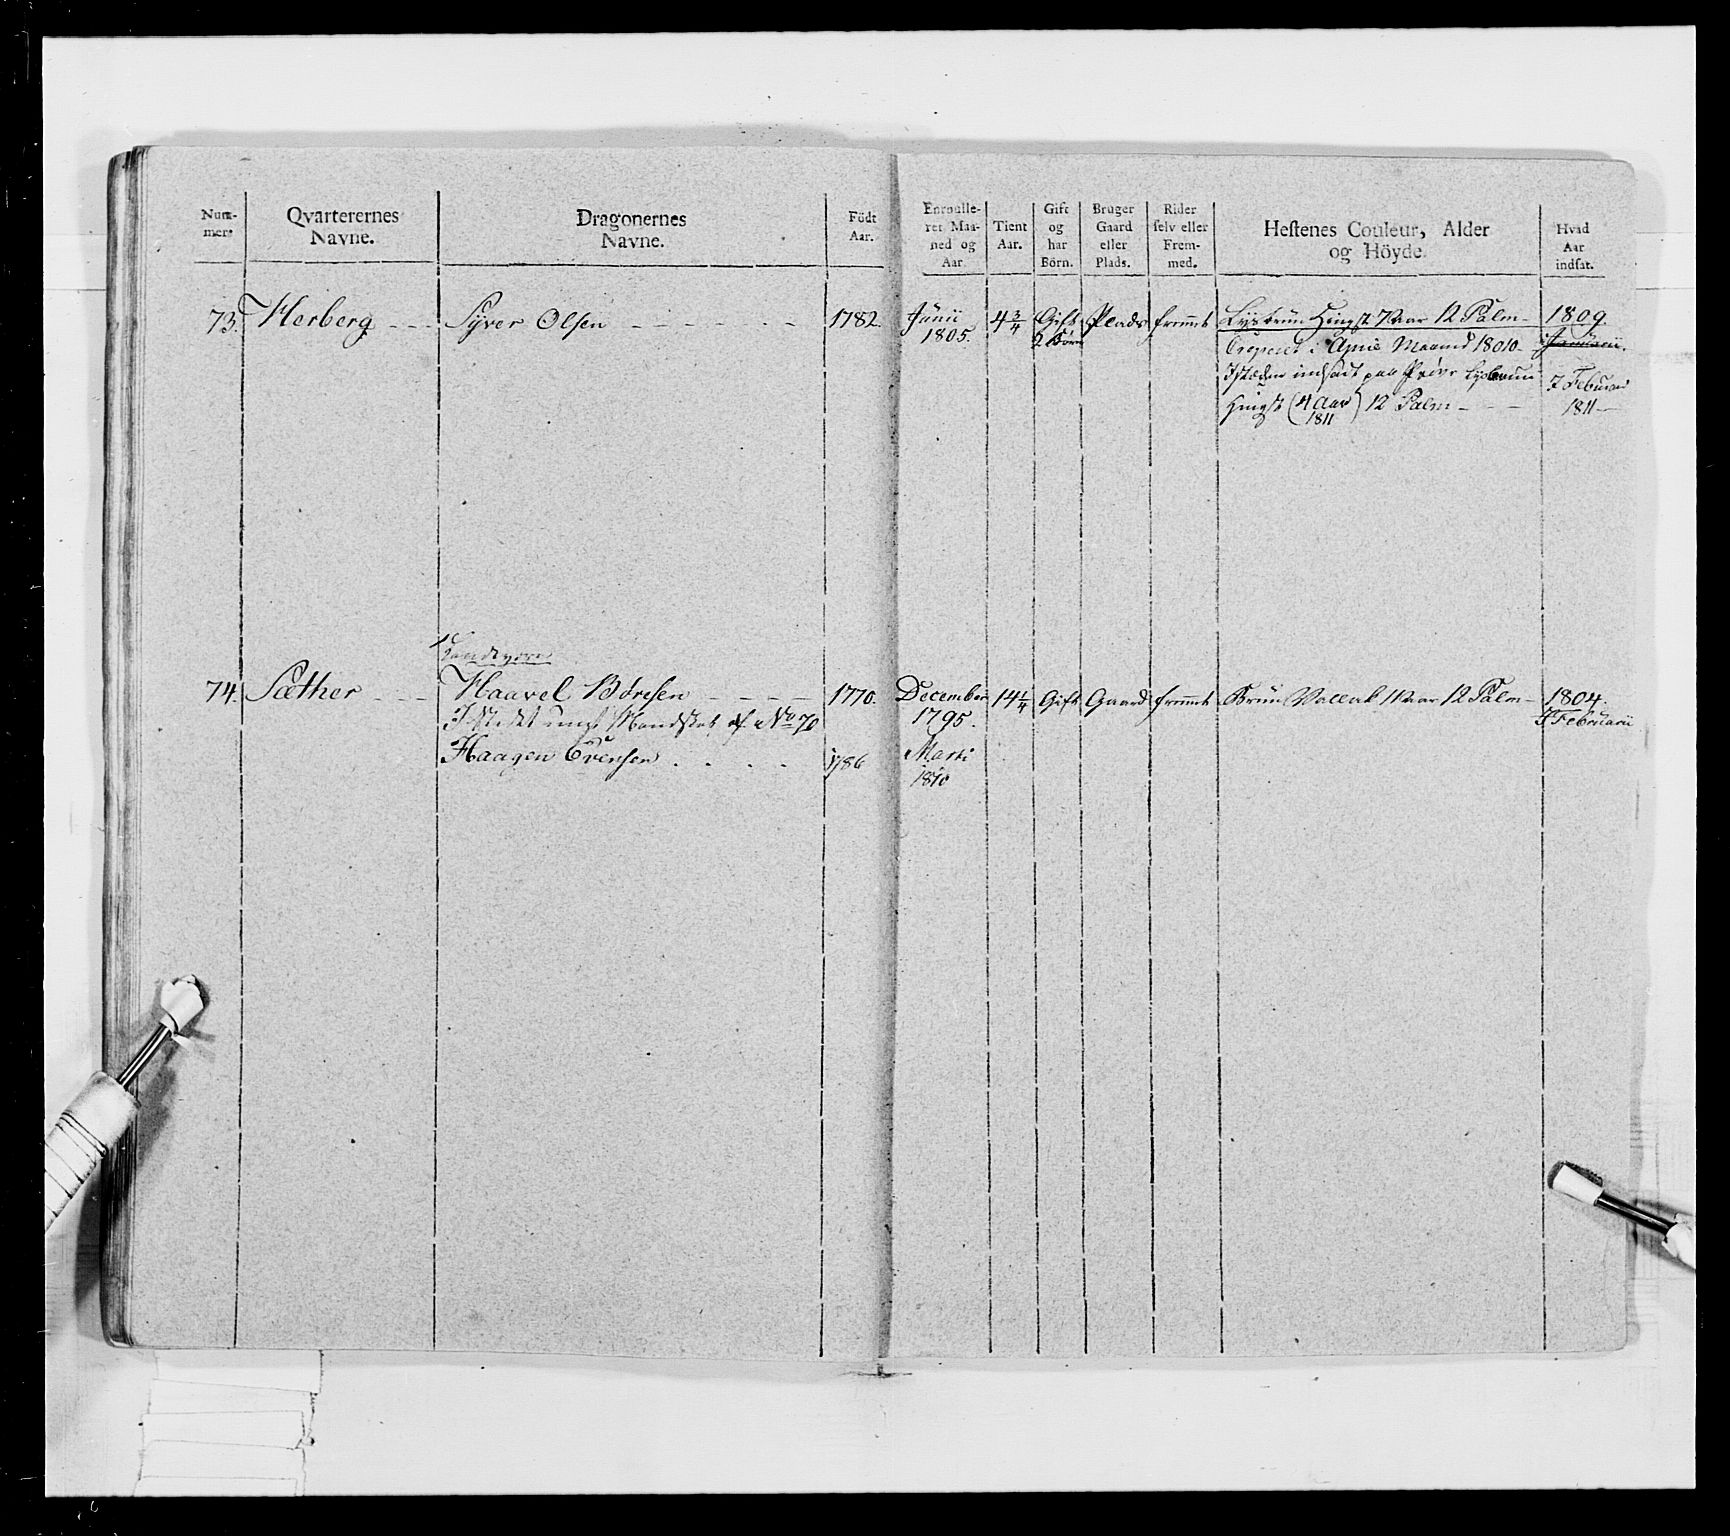 Num-
mere
Qvarterernes
Navne.
Dragonernes
Navne.
Födt
Aar.
Enroulle-
ret Maa-
ned og
Aar
Tient
Aar.
Gift
og
har
Börn.
Bruger
Gaard
eller
Plads.
Rider
selv eller
Frem-
med.
Hestenes Couleur, Alder
og Höyde.
Hvad
Aar
indsat.
73. Herberg Syver Olsen 1782. Junii 4 3/4 Gift Plads fremmt Lysbrun Hingst 7 Aar 12 Palm 1809.
1805. 2 Börn
i April Maaned 1810 Januarii.
indsadt paa Pröve Lysbrun 7 Februar
Hingst (4 Aar 1811) 12 Palm 1811
74. Sæther Haavel Böresen 1770. December 14 1/4 Gift Gaard fremmt Brun Vallak 11 Aar 12 Palm 1804.
Mandskab af No 70 1795. Februarii
Haagen Evensen 1786 Marti
1810